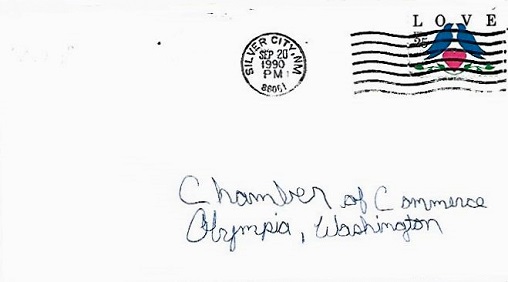 LOVE
25
SILVER CITY, NM
SEP 20
1990
PM
88061
Chamber of Commerce
Olympia, Washington